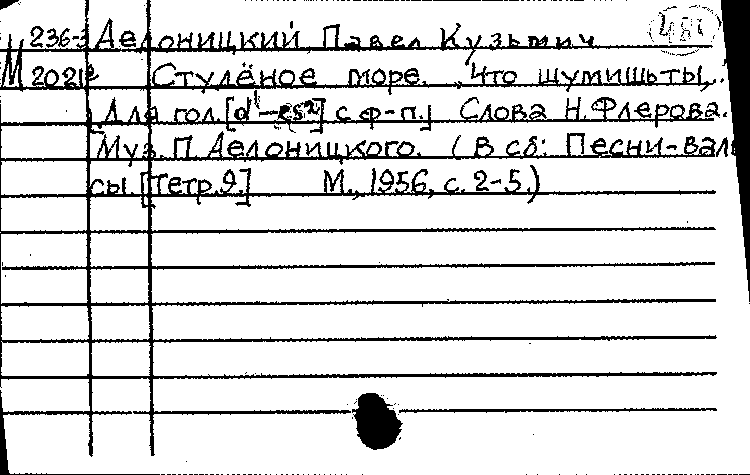 236-3 Аелоницкий, Павел Кузьмич
М 2021 Стулёное море. "Что шумишь ты,..
[Для гол. [d¹-es²] с ф-п.] Слова Н. Флерова.
Муз. П. Аелоницкого. (В сб: Песни-валь
сы. [Тетр. 9.] М., 1956, с. 2-5.)